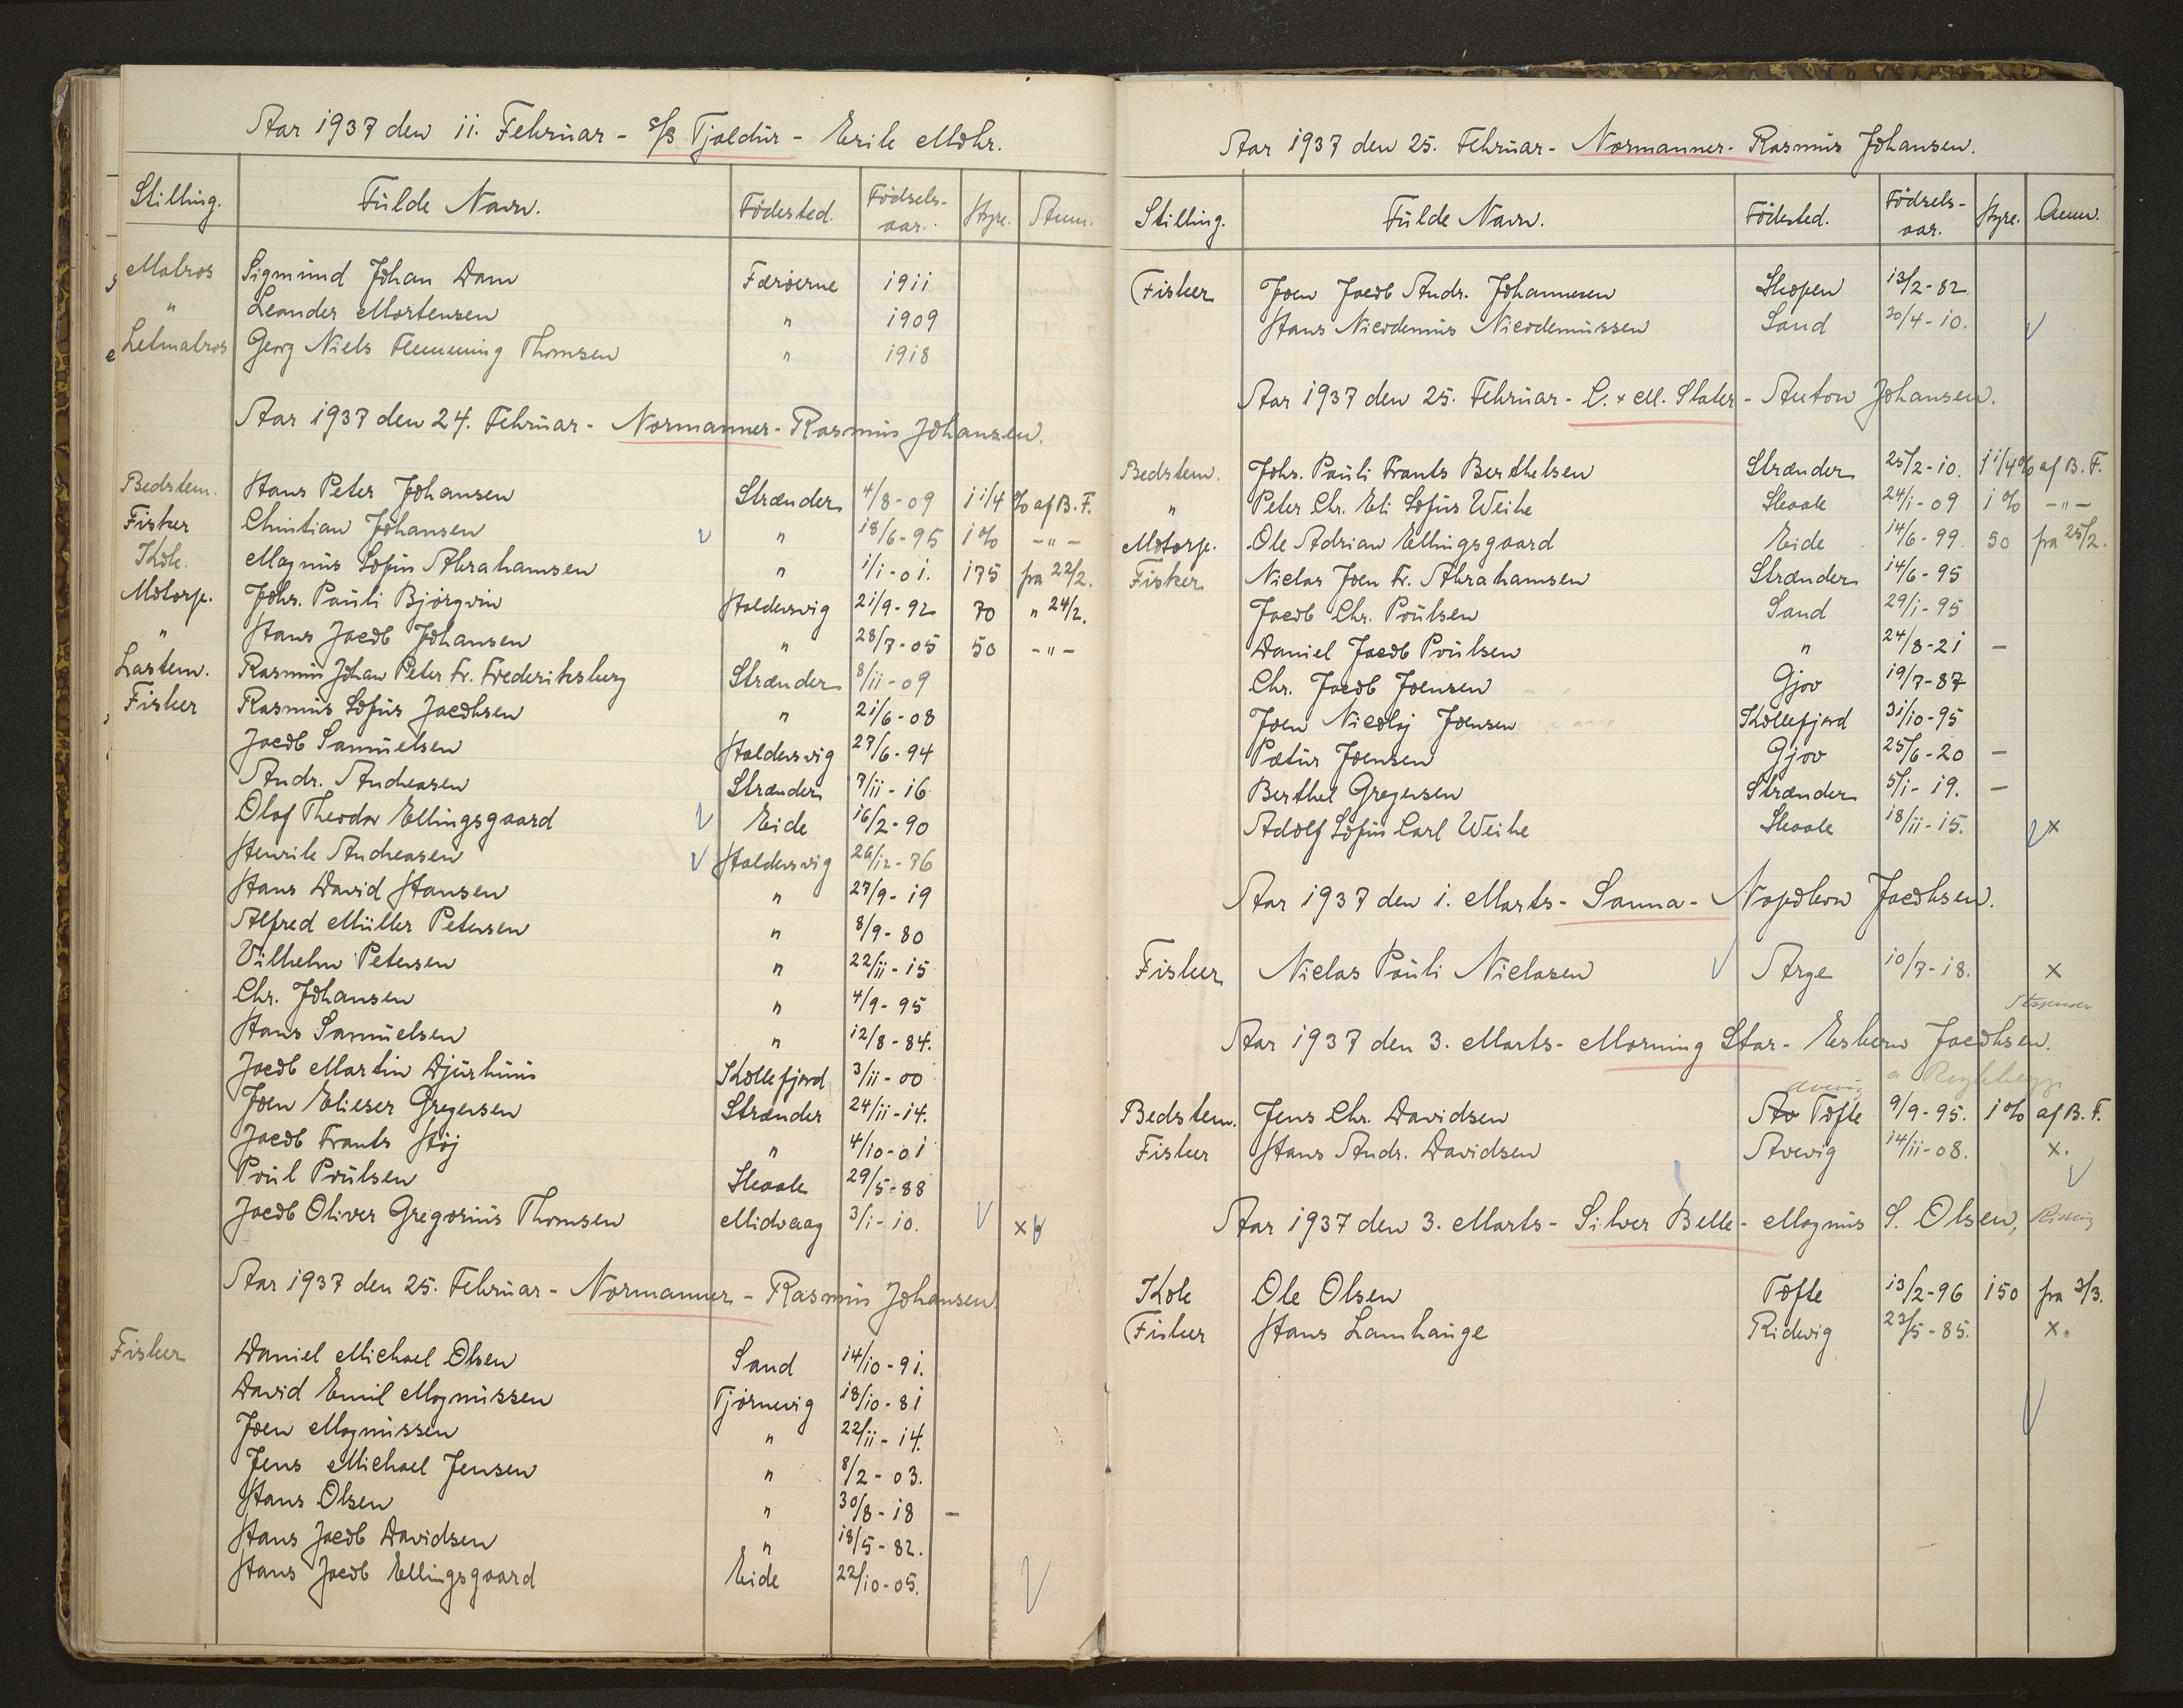 Aar 1937 den 11. Februar - s/s Tjaldur - Erik Mohr.
Stilling. Fulde Navn. Födested. Födsels-aar. Hyre. Anm.
Matros Sigmund Johan Dam Færöerne 1911
" Leander Mortensen " 1909
Letmatros Georg Niels Flemming Thomsen " 1918
Aar 1937 den 24. Februar - Normanner - Rasmus Johansen.
Bedstem. Hans Peter Johansen Strænder 4/8-09 1 1/4 % af B.F.
Fisker Christian Johansen " 18/6-95 1% -"-
Kok. Magnus Sofus Abrahamsen " 1/1-01. 175 fra 22/2.
Motorp. Johs. Pauli Björgvin Haldersvig 21/9-92 70 " 24/2.
" Hans Jacob Johansen " 28/7-05 50 -"-
Lastem. Rasmus Johan Peter Fr. Frederiksberg Strænder 8/11-09
Fisker Rasmus Sofus Jacobsen " 21/6-08
Jacob Samuelsen Haldersvig 27/6-94
Andr. Andreasen Strænder 7/11-16
Olaf Theodor Ellingsgaard Eide 16/2-90
Henrik Andreasen Haldersvig 26/12-76
Hans David Hansen " 27/9-19
Alfred Müller Petersen " 8/9-80
Vilhelm Petersen " 22/11-15
Chr. Johansen " 4/9-95
Hans Samuelsen " 12/8-84.
Jacob Martin Djurhuus Kollefjord 3/11-00
Joen Elieser Gregersen Strænder 24/11-14.
Jacob Frants Höj " 4/10-01
Poul Poulsen Skaale 29/5-88
Jacob Oliver Gregorius Thomsen Midvaag 3/1-10. x
Aar 1937 den 25. Februar - Normanner - Rasmus Johansen
Fisker Daniel Michael Olsen Sand 14/10-91.
David Emil Magnussen Tjörnevig 18/10-81
Joen Magnussen " 22/11-14.
Jens Michael Jensen " 8/2-03.
Hans Olsen " 30/8-18 -
Hans Jacob Davidsen " 18/5-82.
Hans Jacob Ellingsgaard Eide 22/10-05.
Aar 1937 den 25. Februar - Normanner - Rasmus Johansen.
Stilling. Fulde Navn. Födested. Födsels-aar. Hyre. Anm.
Fisker Joen Jacob Andr. Johannesen Skopen 13/2-82
Hans Nicodemus Nicodemussen Sand 30/4-10.
Aar 1937 den 25. Februar - C. & M. Slater - Anton Johansen.
Bedstem. Johs. Pauli Frants Berthelsen Strænder 25/2-10. 1 1/4% af B.F.
" Peter Chr. Eli Sofus Weihe Skaale 24/1-09 1% -"-
Motorp. Ole Adrian Ellingsgaard Eide 14/6-99. 50 fra 25/2.
Fisker Niclas Joen Fr. Abrahamsen Strænder 14/6-95
Jacob Chr. Poulsen Sand 29/1-95
Daniel Jacob Poulsen " 24/8-21 -
Chr. Jacob Joensen Gjov 19/7-87
Joen Nicolaj Joensen Kollefjord 31/10-95
Pætur Joensen Gjov 25/6-20 -
Berthel Gregersen Strænder 5/1-19. -
Adolf Sofus Carl Weihe Skaale 18/11-15. x
Aar 1937 den 1. Marts - Sanna - Napoleon Jacobsen.
Fisker Niclas Pauli Niclasen Arge 10/7-18. x
Aar 1937 den 3. Marts - Morning Star - Esbern Jacobsen.
Bedstem. Jens Chr. Davidsen Tofte 9/9-95. 1% af B.F.
Fisker Hans Andr. Davidsen Arevig 14/11-08. x.
Aar 1937 den 3. Marts - Silver Belle - Magnus S. Olsen,
Kok Ole Olsen Tofte 13/2-96 150 fra 3/3.
Fisker Hans Lamhauge Ridevig 23/5-85. x.